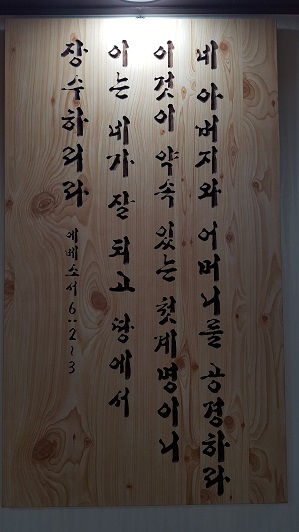 네 아버지와 어머니를 공경하라
이것이 약속 있는 첫계명이니
이는 네가 잘 되고 땅에서
장수하리라
에베소서 6:2~3